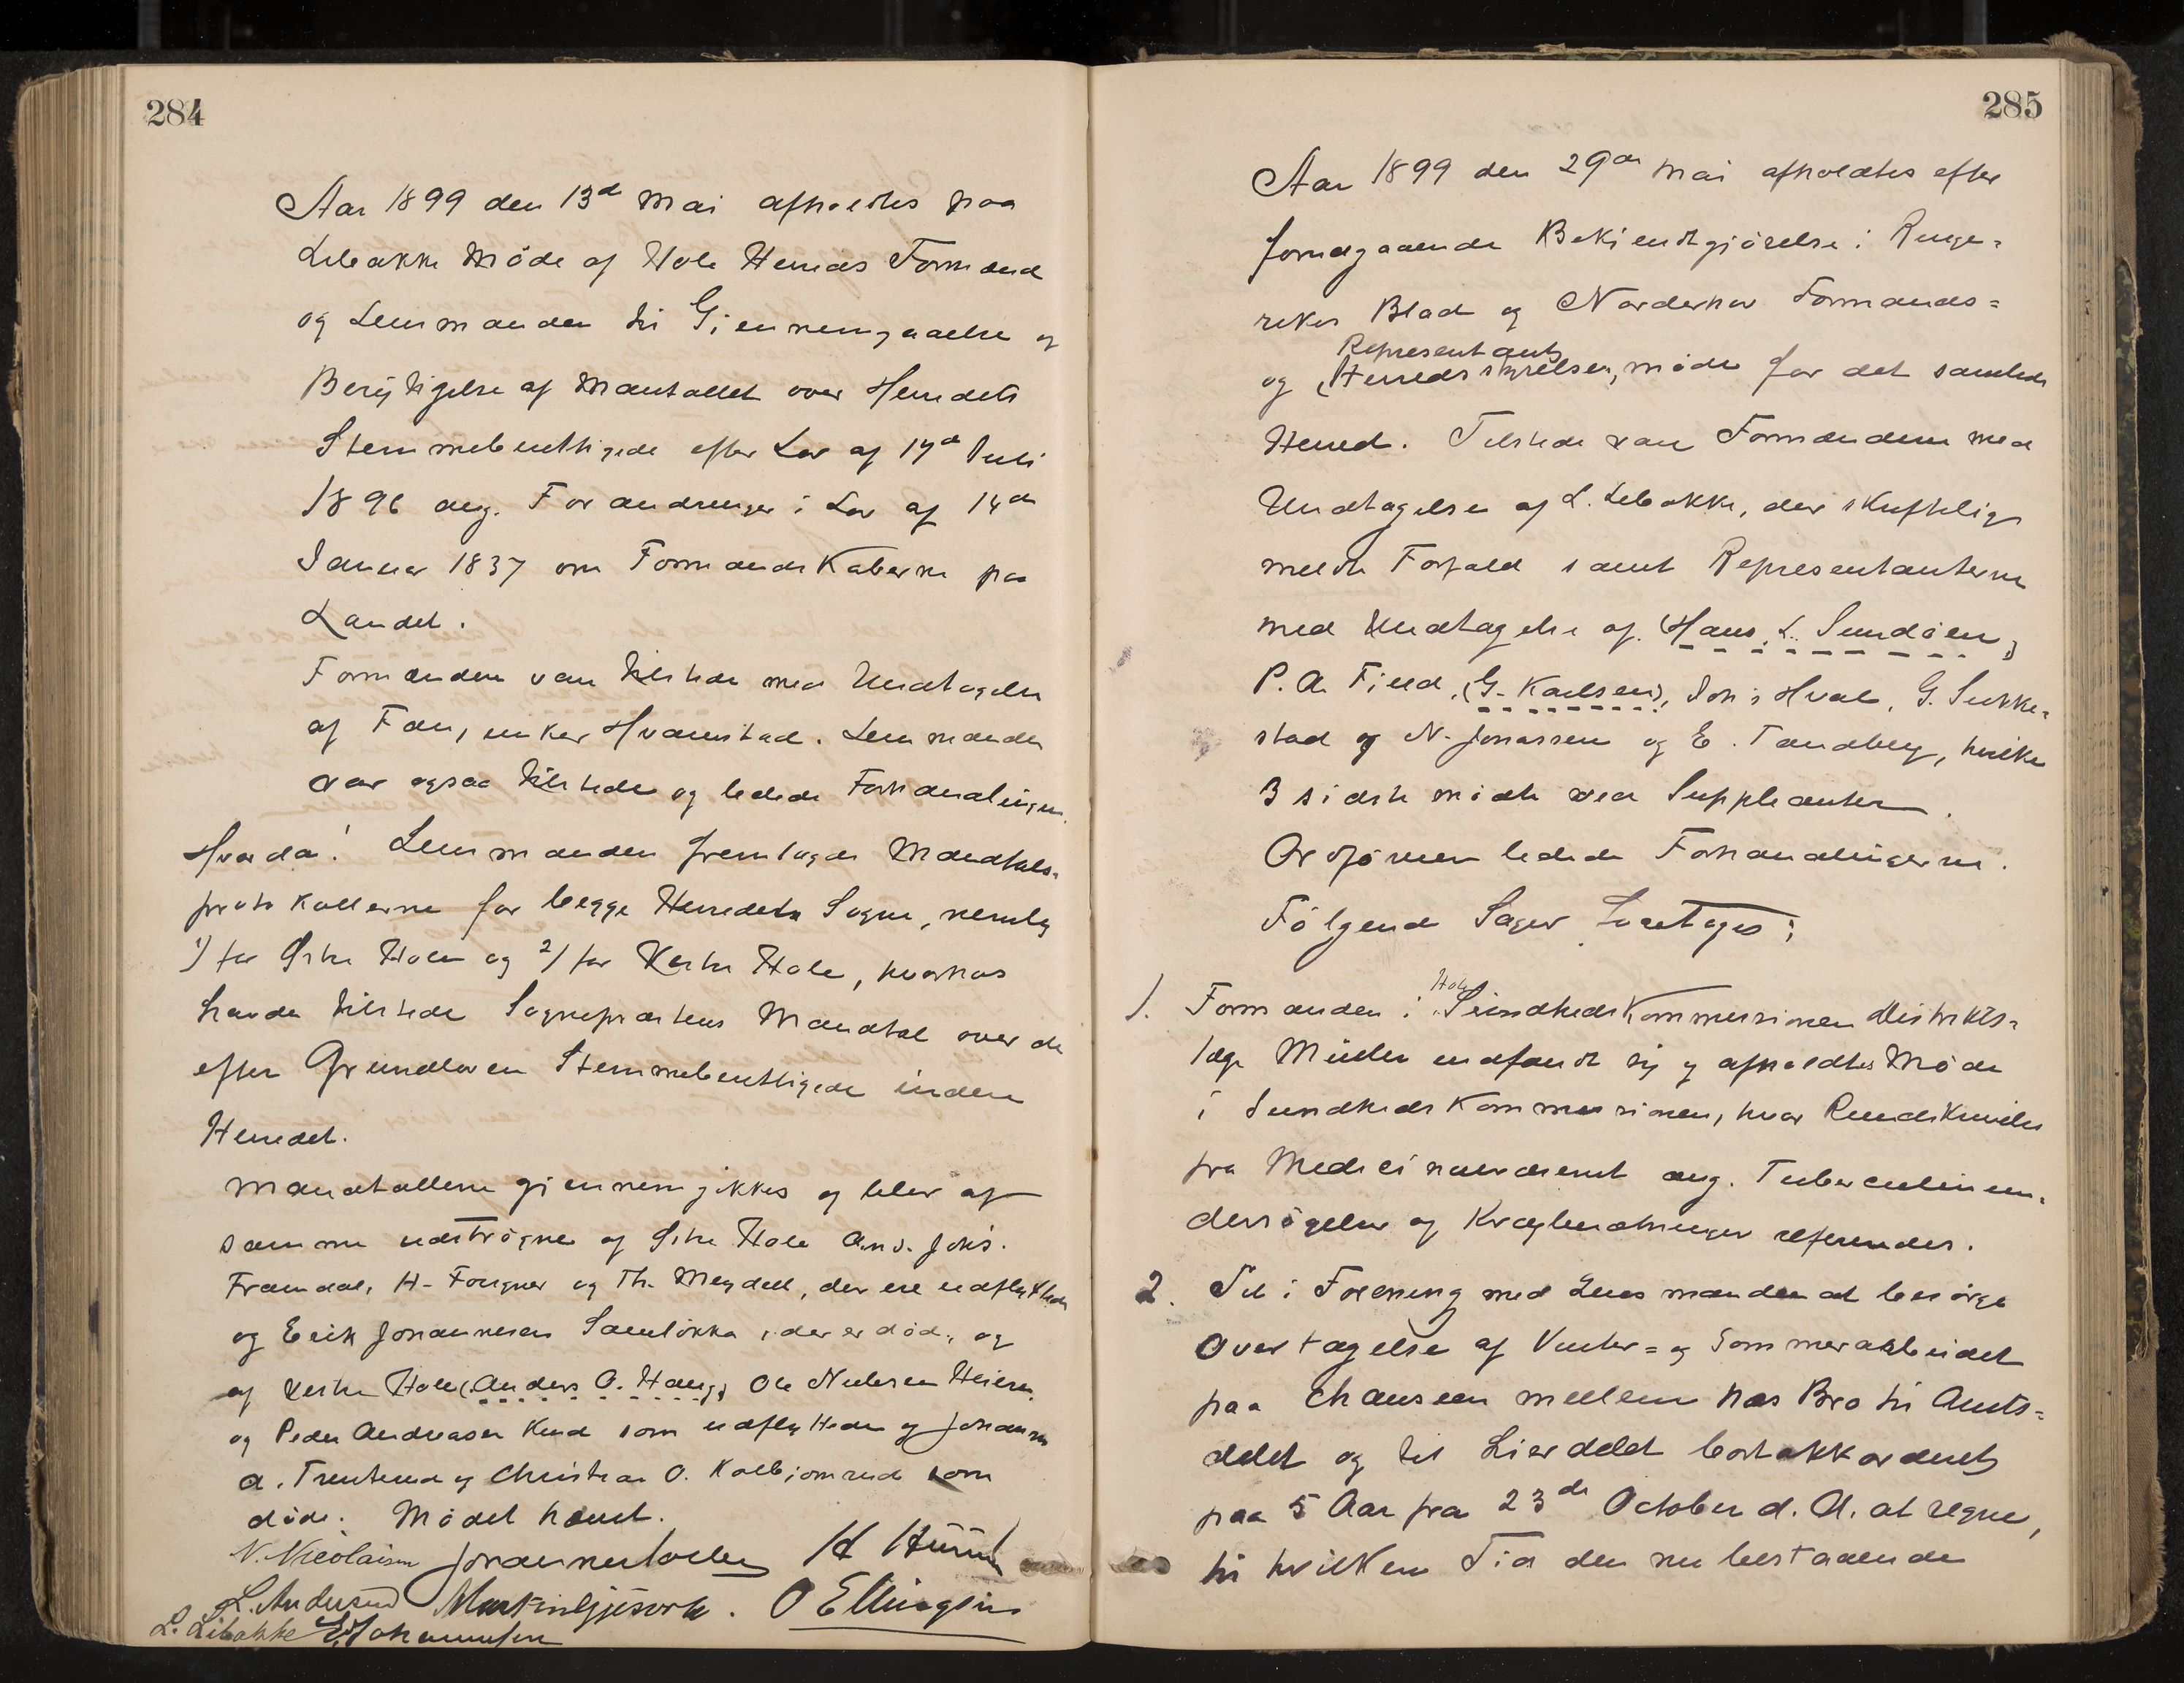 284
Aar 1899 den 13de Mai afholdtes paa
Libakke Möde af Hole Herreds Formænd
og Lensmanden til Gjennemgaaelse og
Berigtigelse af Mantallet over Herredets
Stemmeberettigede efter Lov af
1896 ang. Forandringer i Lov af 14de
Januar 1837 om Formandskaberne paa
Landet.
Formænden var tilstede med Undtagelse
af Hvamstad. Lensmanden
var ogsaa tilstede og ledede Forhandlingen.
Hvorda! Lensmanden fremlagde Mandtals-
protokollerne for begge Herredets Sogne, nemlig
1) for Østre Hole og 2) for Vestre Hole, hvorhos
havdes tilstede Sognepræstens Mandtal over de
efter Grundloven Stemmeberettigede inden
Herredet.
Mandtallene gjennemgikkes og blev af
samme udströgne af Østre Hole And. Johs.
Framdal, H. Fougner og Th. Meydell, der ere udflyttede
og Erik Johannesen Samløkka, der er död, og
af Vestre Hole (Anders O. Haug), Ole Nielsen Heieren
og Peder Andreasen Rud som udflyttede og Johannes
A. Trulsrud og Christian O. Kolbjornrud som
döde. Mödet hævet.
N. Nicolaisen H Hurum
L. Andersen Martin Gjesvold. O Ellingsen
L. Libakke E. Johannesen
285
Aar 1899 den 29de Mai afholdtes efter
foregaaende Bekjendtgjörelse i Ringe-
rikes Blad og Norderhov Formands-
Representant
og (Herredsstyrelses) möde for det samlede
Herred. Tilstede vare Formændene med
Undtagelse af L. Libakke, der skriftlig
meldte Forfald samt Representanterne
med Undtagelse af (Hans L. Sundöen,)
P. A. Fjeld, (G. Karlsen), Joh's Hval, G. Sukke-
stad og N. Jonassen og E. Tandberg, hvilke
3 sidste mödte ved Suppleanter.
Ordföreren ledede Forhandlingerne.
Fölgende Sager foretoges:
Hole
1. Formanden i Sundhedskommissionen Distrikts-
læge Müller indfandt sig og afholdtes Möde
i Sundhedskommissionen, hvor Rundskrivelse
fra Medicinalvæsenet ang. Tuberculinun-
dersögelser af Kvægbesætninger refereredes.
2. Til i Forening med Lensmanden at besörge
Overtagelse af Vinter- og Sommerarbeidet
paa Chauseen mellem Næs Bro til Amts-
delet og til Lierdelet bortakkorderet
paa 5 Aar fra 23de October d. A. at regne,
til hvilken Tid den nu bestaaende